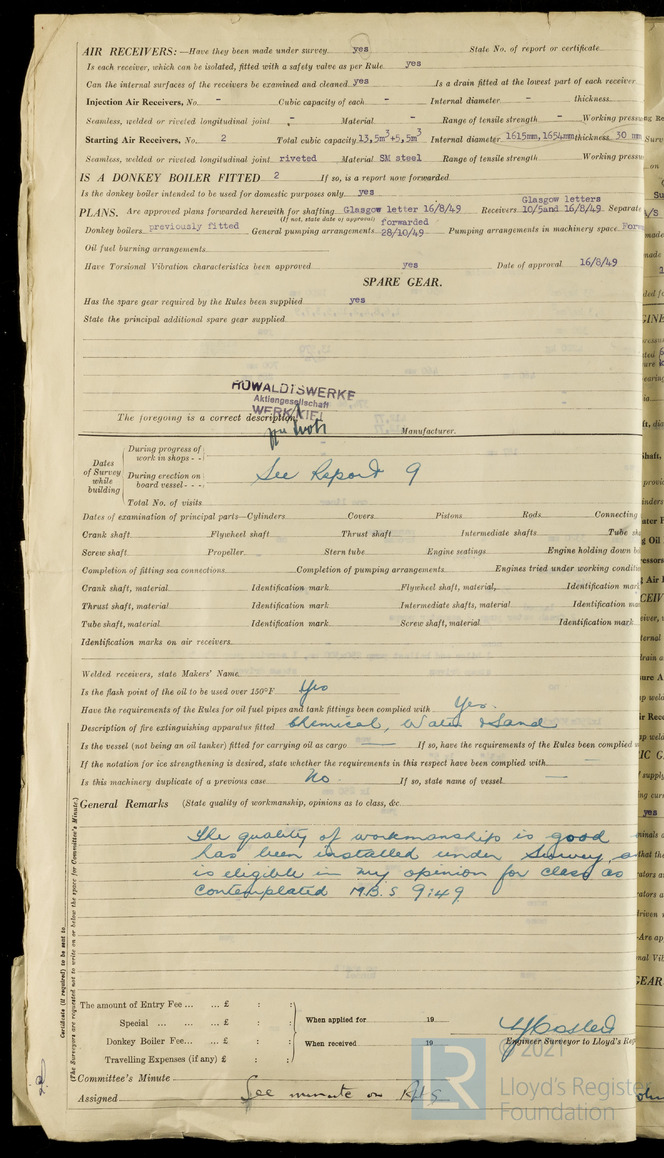 AIR RECEIVERS:—Have they been made under survey yes State No. of report or certificate
Is each receiver, which can be isolated, fitted with a safety valve as per Rule yes
Can the internal surfaces of the receivers be examined and cleaned yes Is a drain fitted at the lowest part of each receiver
Injection Air Receivers, No. - Cubic capacity of each - Internal diameter - thickness
Seamless, welded or riveted longitudinal joint - Material - Range of tensile strength - Working pressure
Starting Air Receivers, No. 2 Total cubic capacity 13,5m³+5,5m³ Internal diameter 1615mm,1654mm thickness 30 mm
Seamless, welded or riveted longitudinal joint riveted Material SM steel Range of tensile strength Working pressu
IS A DONKEY BOILER FITTED 2 If so, is a report now forwarded
Is the donkey boiler intended to be used for domestic purposes only yes
Glasgow letters
PLANS. Are approved plans forwarded herewith for shafting Glasgow letter 16/8/49 Receivers 10/5and 16/8/49 Separate
(If not, state date of approval)
Donkey boilers previously fitted General pumping arrangements forwarded 28/10/49 Pumping arrangements in machinery space Forw
Oil fuel burning arrangements
Have Torsional Vibration characteristics been approved yes Date of approval 16/8/49
SPARE GEAR.
Has the spare gear required by the Rules been supplied yes
State the principal additional spare gear supplied
HOWALDTSWERKE
Aktiengesellschaft
WERK KIEL
The foregoing is a correct description
Manufacturer.
Dates of Survey while building
During progress of work in shops - -
During erection on board vessel - - -
See Report 9
Total No. of visits
Dates of examination of principal parts—Cylinders Covers Pistons Rods Connecting
Crank shaft Flywheel shaft Thrust shaft Intermediate shafts Tube sh
Screw shaft Propeller Stern tube Engine seatings Engine holding down b
Completion of fitting sea connections Completion of pumping arrangements Engines tried under working conditi
Crank shaft, material Identification mark Flywheel shaft, material, Identification mark
Thrust shaft, material Identification mark Intermediate shafts, material Identification ma
Tube shaft, material Identification mark Screw shaft, material Identification mark
Identification marks on air receivers
Welded receivers, state Makers' Name
Is the flash point of the oil to be used over 150°F Yes
Have the requirements of the Rules for oil fuel pipes and tank fittings been complied with Yes.
Description of fire extinguishing apparatus fitted Chemical, Water & Sand
Is the vessel (not being an oil tanker) fitted for carrying oil as cargo — If so, have the requirements of the Rules been complied w
If the notation for ice strengthening is desired, state whether the requirements in this respect have been complied with —
Is this machinery duplicate of a previous case No. If so, state name of vessel —
General Remarks (State quality of workmanship, opinions as to class, &c.
The quality of workmanship is good
has been installed under Survey, a
is eligible in my opinion for class as
contemplated M.B.S 9:49
Certificate (if required) to be sent to
(The Surveyors are requested not to write on or below the space for Committee's Minute.)
The amount of Entry Fee ... ... £ : :
Special ... ... ... £ : :
Donkey Boiler Fee... ... £ : :
Travelling Expenses (if any) £ : :
When applied for 19
When received 19
Engineer Surveyor to Lloyd's Reg
Committee's Minute
Assigned See minute on
© 2021
LR
Lloyd's Register
Foundation